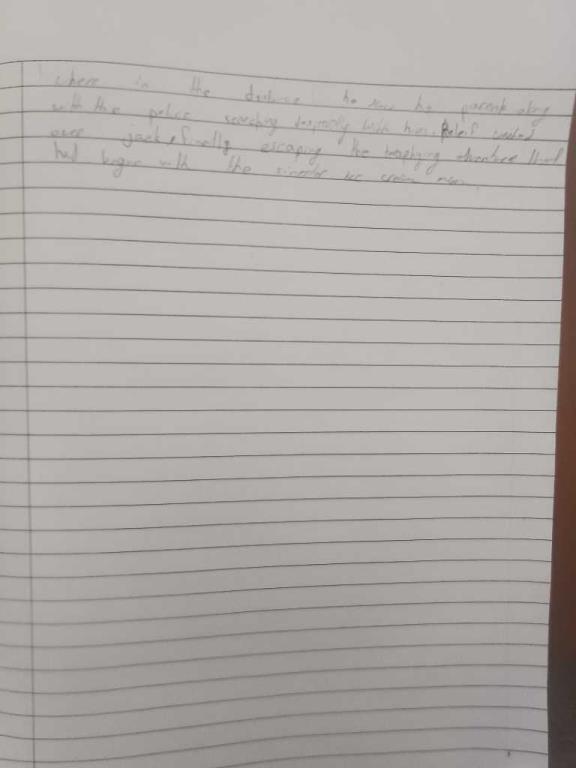 where in the distance he saw his parents along
with the police searching desprately with him. Releif washed
over jack, finally escaping the terrifying adventure that
had begun with the sinester ice cream man.